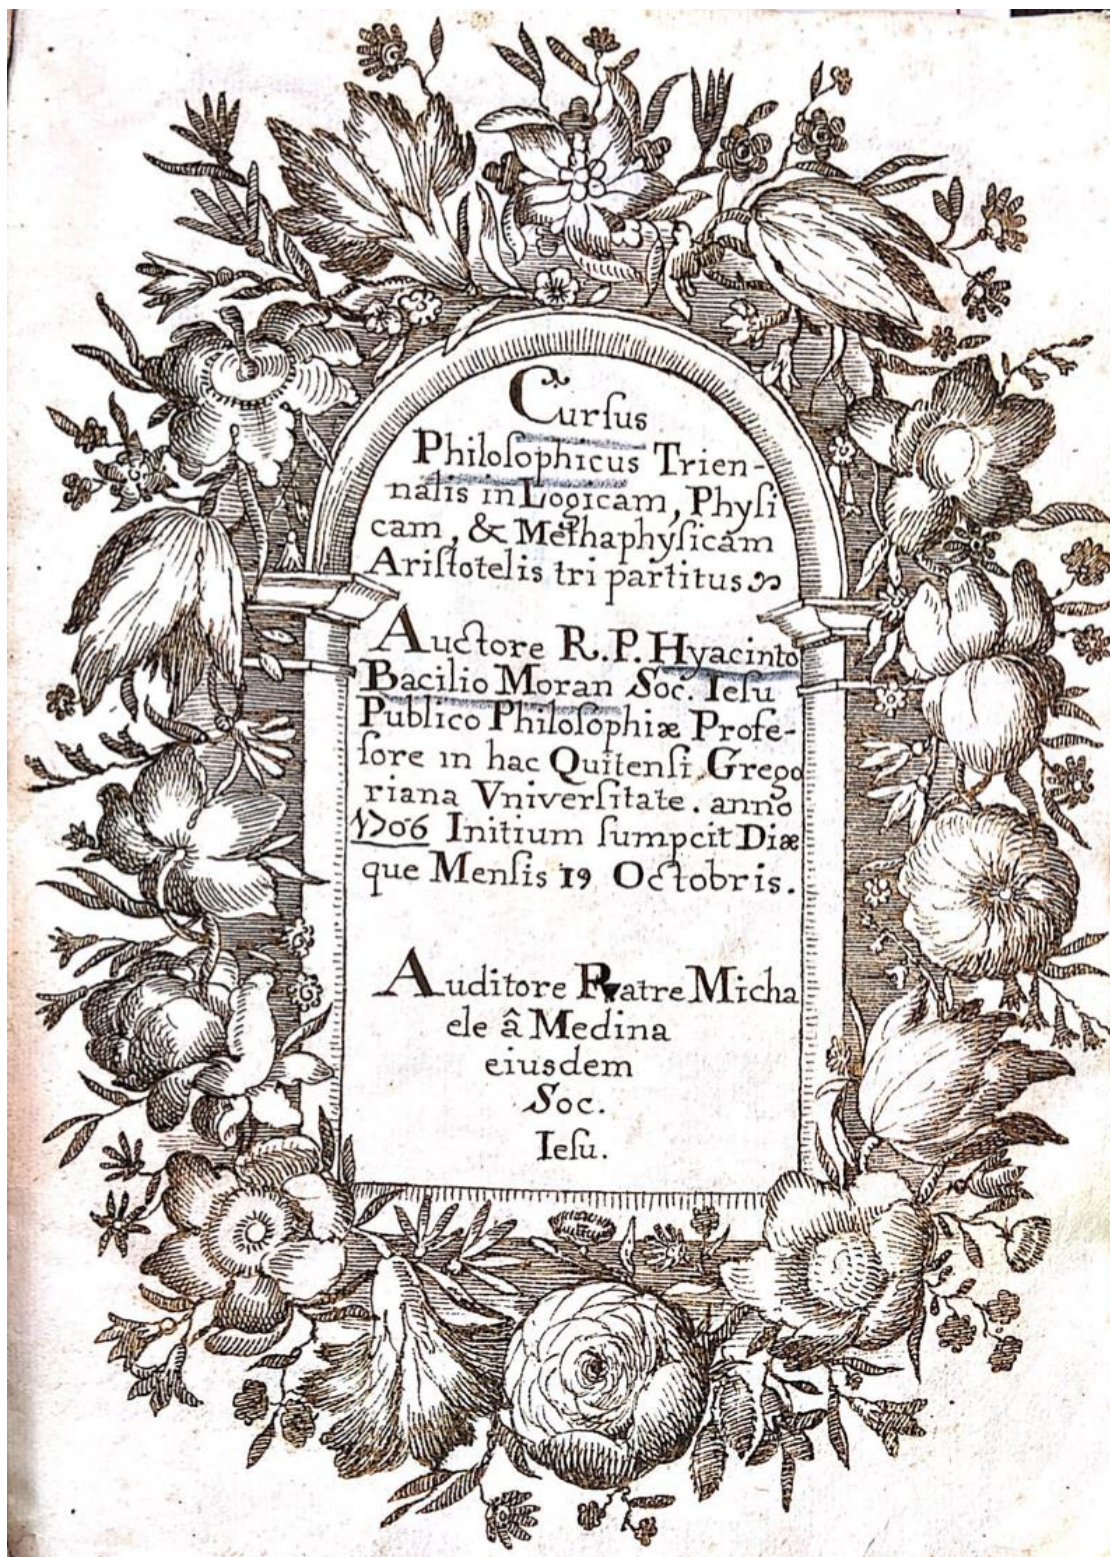 Curſus
Philoſophicus Trien-
nalis in Logicam, Phyſi
cam, & Methaphyſicam
Ariſtotelis tri partitus
Auctore R. P. Hyacinto
Bacilio Moran Soc. Ieſu
Publico Philoſophiæ Profe-
ſore in hac Quitenſi Grego
riana Vniverſitate. anno
1706 Initium ſumpcit Diæ
que Menſis 19 Octobris.
Auditore Patre Micha
ele â Medina
eiusdem
Soc.
Ieſu.